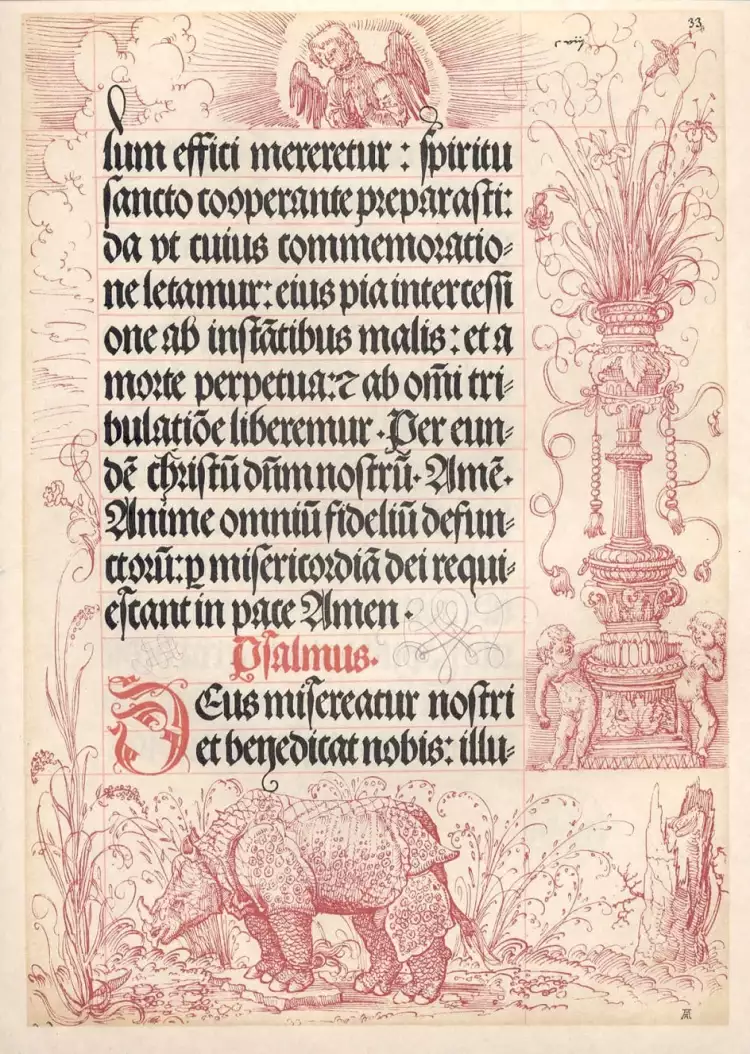 33
lum effici mereretur : spiritu
sancto cooperante preparasti:
da vt cuius commemoratio⸗
ne letamur: eius pia intercessi
one ab instātibus malis : et a
morte perpetua: ⁊ ab om̄i tri⸗
bulatiōe liberemur . Per eun⸗
dē christū dn̄m nostrū. Amē.
Anime omniū fideliū defun⸗
ctorū: ꝑ misericordiā dei requi⸗
escant in pace Amen .
Psalmus.
DEus misereatur nostri
et benedicat nobis: illu⸗